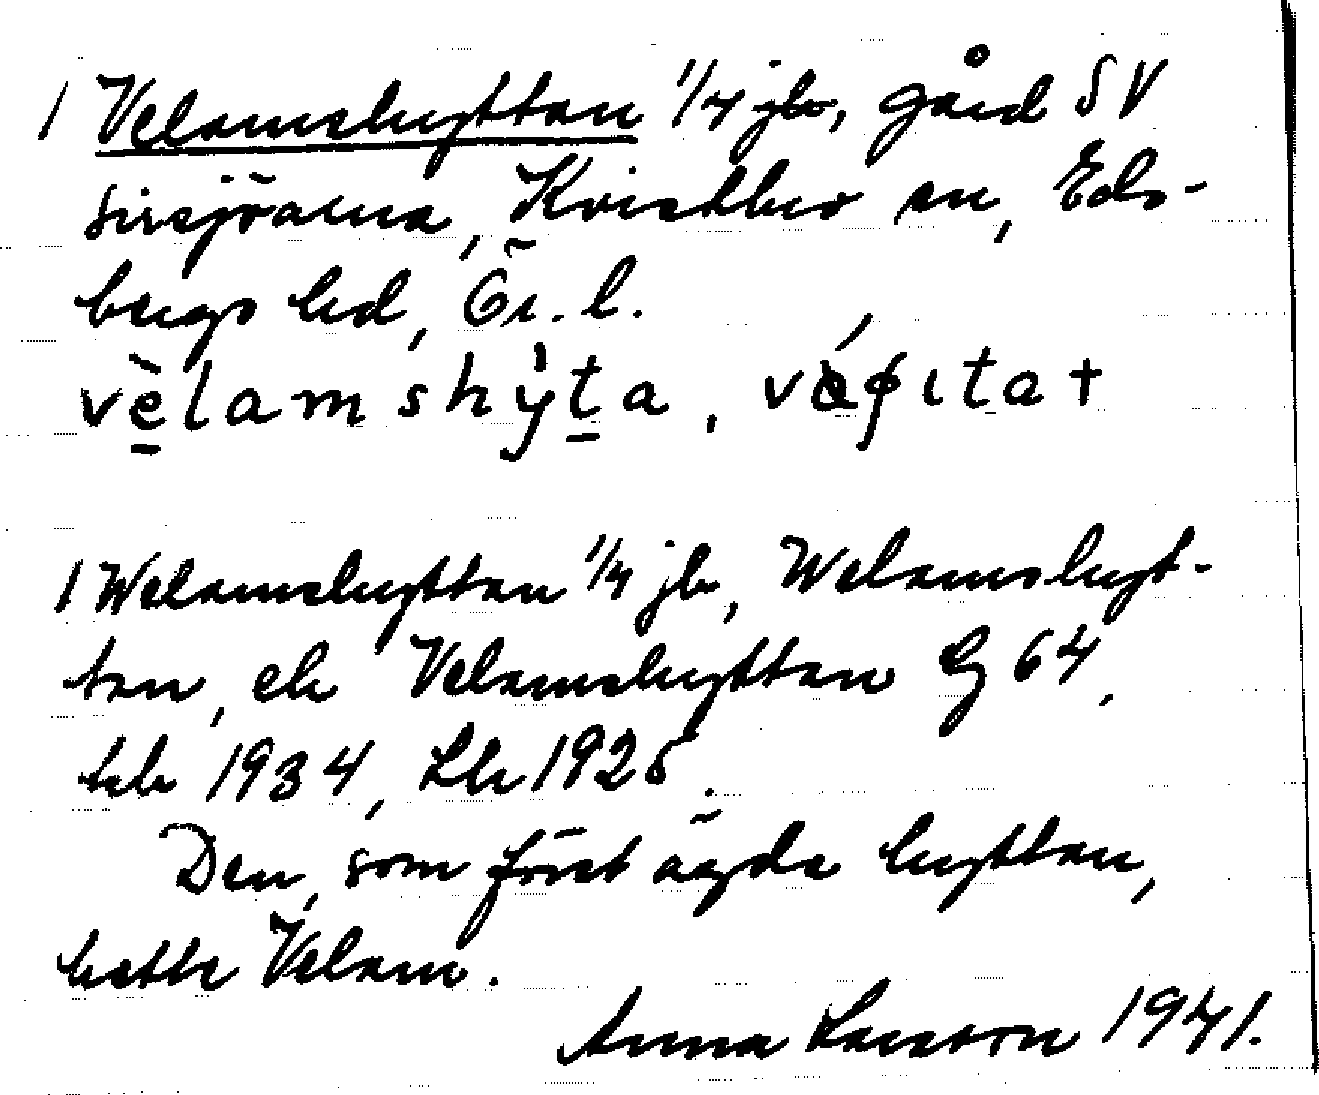 1 Velamshyttan 1/4 jb, gård SV
Sirsjöarna, Kvistbro sn, Eds-
bergs hd, Ör. l.
vèlamshýta, 
1 Welamshyttan 1/4 jb, Welamshyt-
tan, ek Velamshyttan Eg 64,
hb 1934, Lb 1925.
Den, som först ägde hyttan,
hette Velam.
Anna Larsson 1941.